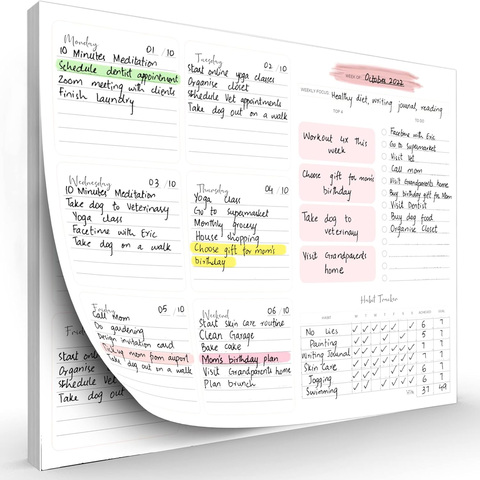 Monday
01 /10
10 Minutes Meditation
Schedule dentist appointment
Zoom meeting with clients
Finish laundry
Tuesday
02 /10
Start online yoga classes
Organise closet
Schedule Vet appointments
Take dog out on a walk
WEEK OF: October 2022
WEEKLY FOCUS
Healthy diet, writing journal, reading
TOP 4
Workout 4x this
week
Choose gift for mom's
birthday
Take dog to
veterinary
Visit Grandparents
home
TO DO
Facetime with Eric
Go to Supermarket
Visit Vet
Call mom
Visit Grandparents home
Buy birthday gift for Mom
Visit Dentist
Buy dog food
Organise Closet
Wednesday
03 /10
10 Minutes Meditation
Take dog to veterinary
Yoga class
Facetime with Eric
Take dog on a walk
Thursday
04 /10
Yoga class
Go to supermarket
Monthly grocery
House shopping
Choose gift for mom's
birthday
Friday
05 /10
Call Mom
Do gardening
Design invitation card
Pick up mom from airport
Take dog out on a walk
Weekend
06 /10
Start skin care routine
Clean Garage
Bake cake
Mom's birthday plan
Visit Grandparents home
Plan brunch
Habit Tracker
M T W T F S S
No Lies
Painting
Writing Journal
Skin Care
Jogging
Swimming
TOTAL
37 49
Start onl
Organise
Schedule Vet
Take dog out